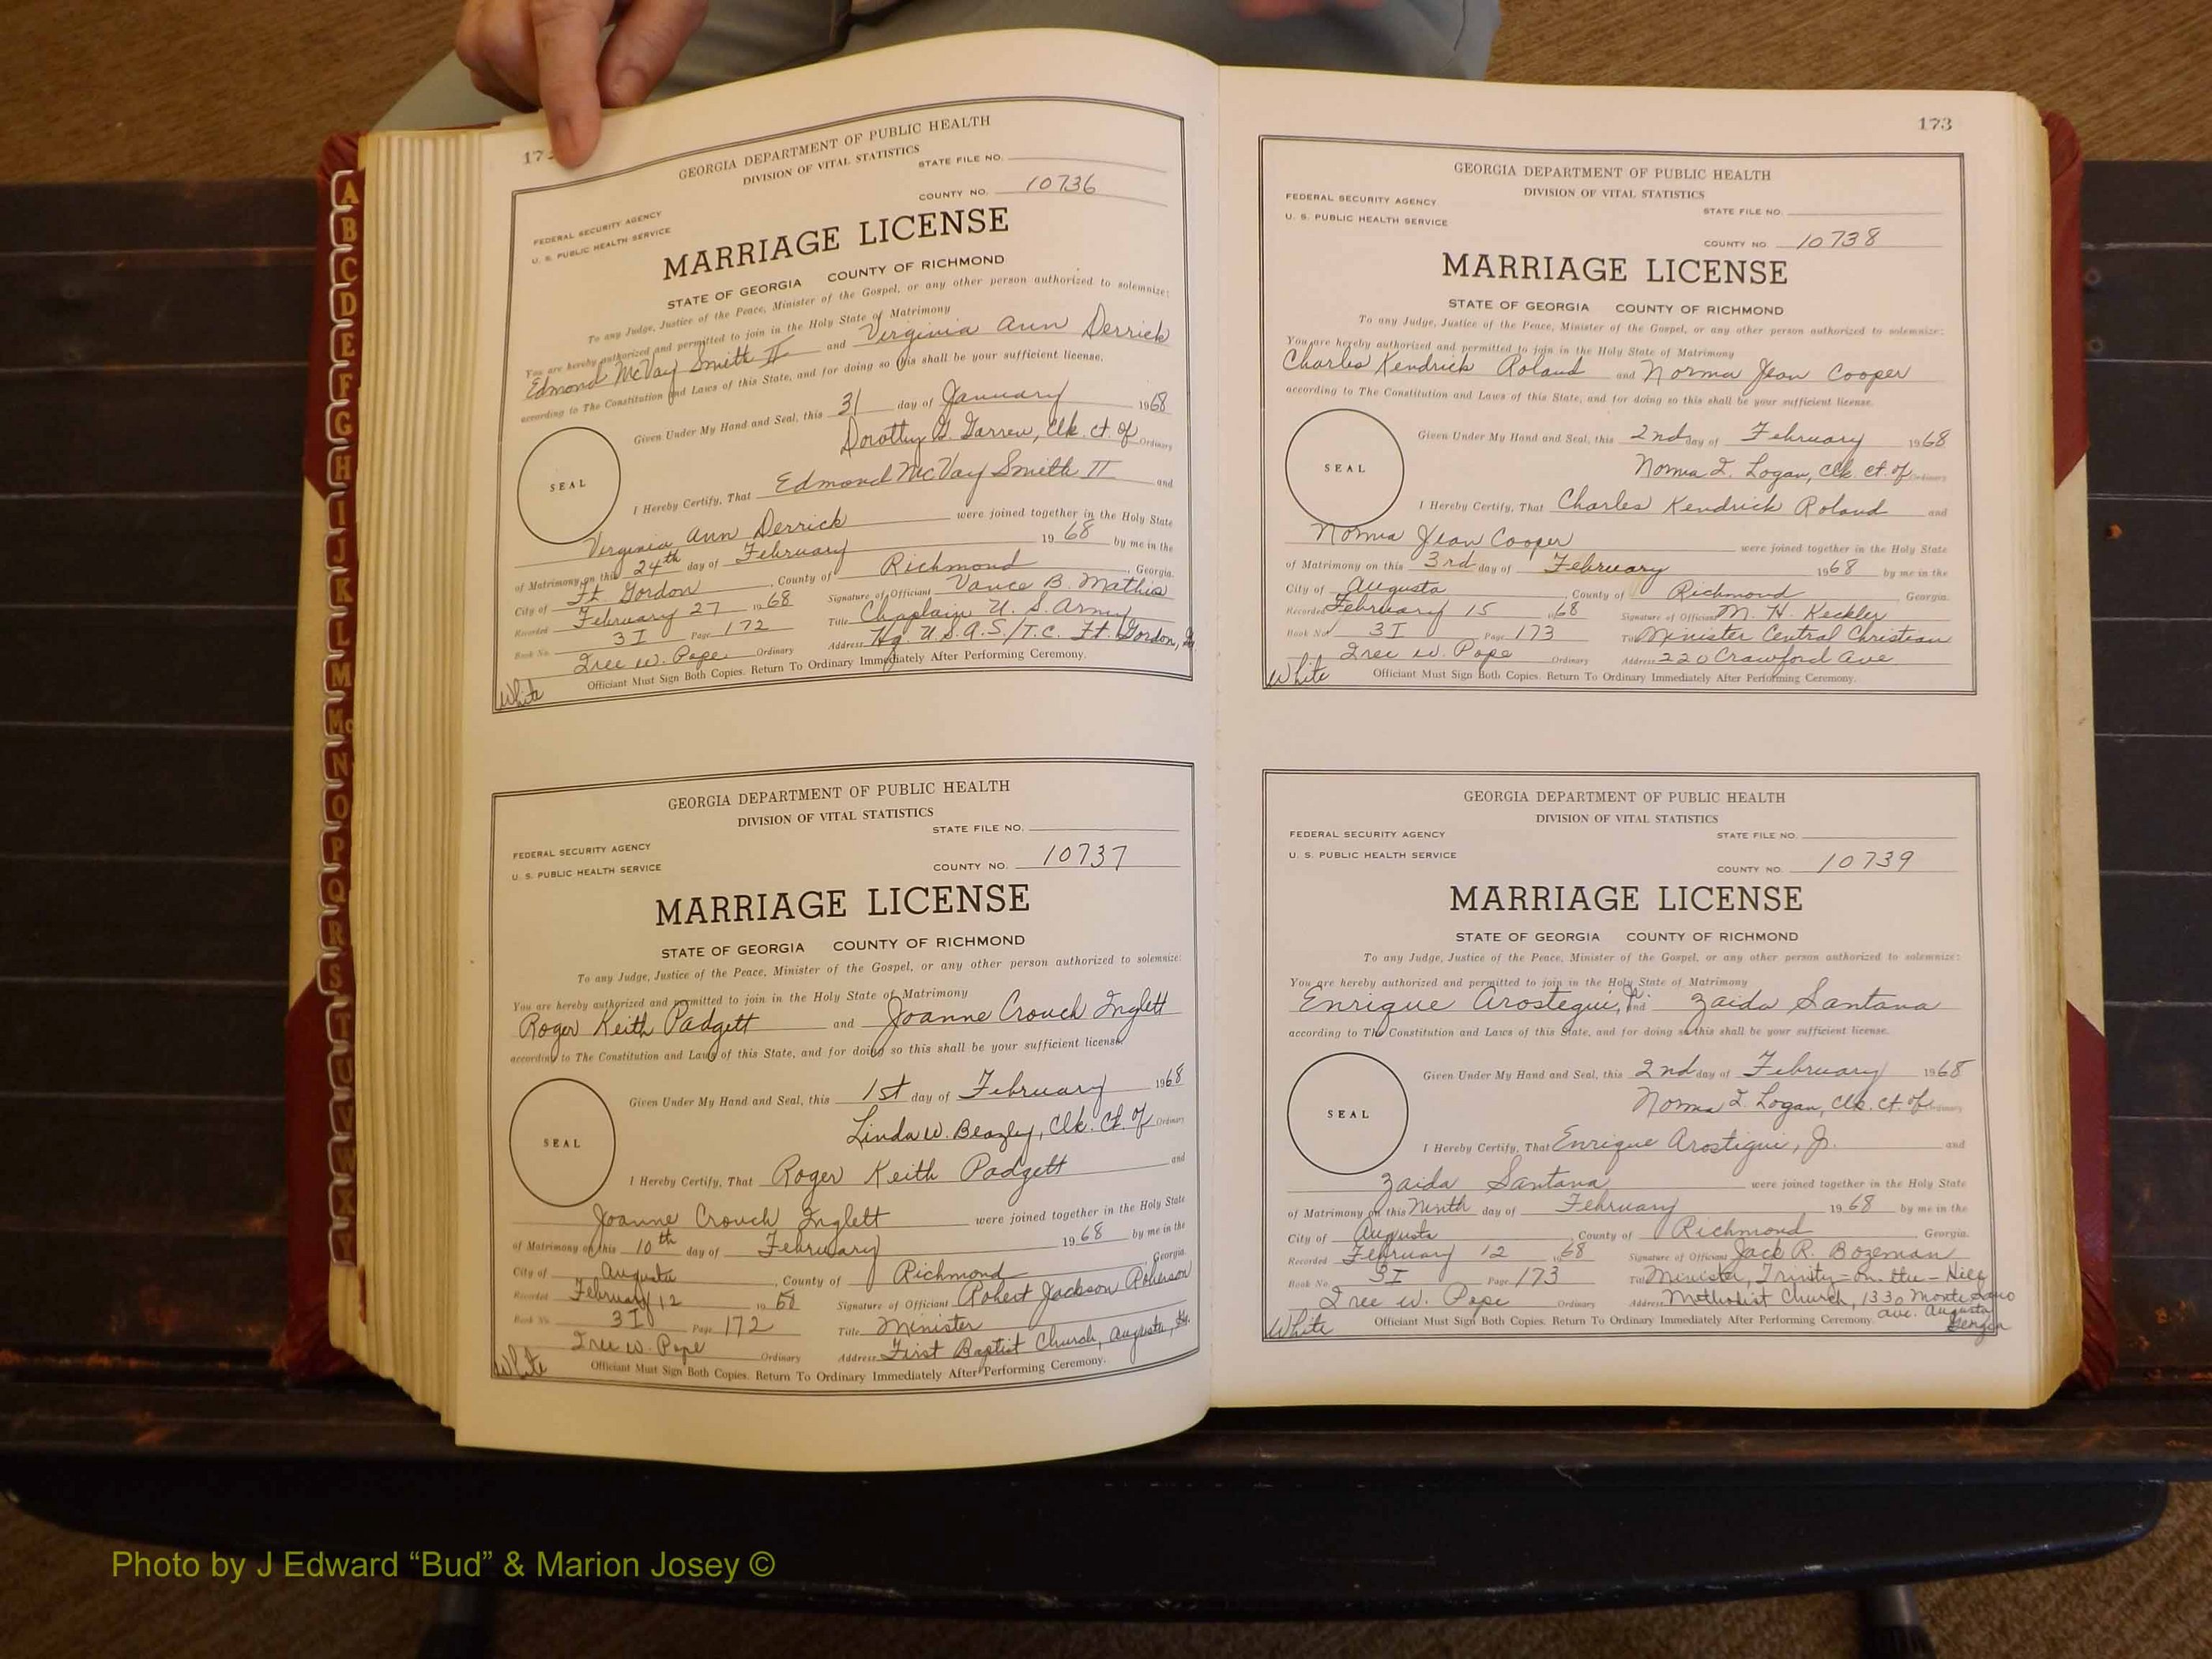 A
B
C
D
E
F
G
H
I
J
K
L
M
Mc
N
O
P
Q
R
S
T
U
V
W
X
Y
17
GEORGIA DEPARTMENT OF PUBLIC HEALTH
DIVISION OF VITAL STATISTICS
STATE FILE NO.
COUNTY NO. 10736
FEDERAL SECURITY AGENCY
U. S. PUBLIC HEALTH SERVICE
MARRIAGE LICENSE
STATE OF GEORGIA COUNTY OF RICHMOND
To any Judge, Justice of the Peace, Minister of the Gospel, or any other person authorized to solemnize:
You are hereby authorized and permitted to join in the Holy State of Matrimony
Edmond McVay Smith II and Virginia Ann Derrick
according to The Constitution and Laws of this State, and for doing so this shall be your sufficient license.
Given Under My Hand and Seal, this 31 day of January 1968
Dorothy G. Garren, Clk. Ct. of Ordinary
SEAL
I Hereby Certify, That Edmond McVay Smith II and
Virginia Ann Derrick were joined together in the Holy State
of Matrimony on this 24th day of February 1968 by me in the
City of Ft. Gordon, County of Richmond, Georgia.
Recorded February 27 1968 Signature of Officiant Vance B. Mathis
Book No. 3I Page 172 Title Chaplain U. S. Army
Tree W. Pope Ordinary Address Hq. U.S.A.S./T.C. Ft. Gordon,
White Officiant Must Sign Both Copies. Return To Ordinary Immediately After Performing Ceremony.
GEORGIA DEPARTMENT OF PUBLIC HEALTH
DIVISION OF VITAL STATISTICS
STATE FILE NO.
FEDERAL SECURITY AGENCY
U. S. PUBLIC HEALTH SERVICE
COUNTY NO. 10737
MARRIAGE LICENSE
STATE OF GEORGIA COUNTY OF RICHMOND
To any Judge, Justice of the Peace, Minister of the Gospel, or any other person authorized to solemnize:
You are hereby authorized and permitted to join in the Holy State of Matrimony
Roger Keith Padgett and Joanne Crouch Inglett
according to The Constitution and Laws of this State, and for doing so this shall be your sufficient license.
Given Under My Hand and Seal, this 1st day of February 1968
Linda W. Beazley, Clk. Ct. of Ordinary
SEAL
I Hereby Certify, That Roger Keith Padgett and
Joanne Crouch Inglett were joined together in the Holy State
of Matrimony on this 10th day of February 1968 by me in the
City of Augusta, County of Richmond Georgia.
Recorded February 12 1968 Signature of Officiant Robert Jackson Roberson
Book No. 3I Page 172 Title Minister
Tree W. Pope Ordinary Address First Baptist Church, Augusta, Ga.
White Officiant Must Sign Both Copies. Return To Ordinary Immediately After Performing Ceremony.
173
GEORGIA DEPARTMENT OF PUBLIC HEALTH
DIVISION OF VITAL STATISTICS
FEDERAL SECURITY AGENCY
U. S. PUBLIC HEALTH SERVICE
STATE FILE NO.
COUNTY NO. 10738
MARRIAGE LICENSE
STATE OF GEORGIA COUNTY OF RICHMOND
To any Judge, Justice of the Peace, Minister of the Gospel, or any other person authorized to solemnize:
You are hereby authorized and permitted to join in the Holy State of Matrimony
Charles Kendrick Roland and Norma Jean Cooper
according to The Constitution and Laws of this State, and for doing so this shall be your sufficient license.
Given Under My Hand and Seal, this 2nd day of February 1968
Norma I. Logan, Clk. Ct. of Ordinary
SEAL
I Hereby Certify, That Charles Kendrick Roland and
Norma Jean Cooper were joined together in the Holy State
of Matrimony on this 3rd day of February 1968 by me in the
City of Augusta, County of Richmond, Georgia.
Recorded February 15 1968 Signature of Officiant M. H. Keckler
Book No. 3I Page 173 Title Minister Central Christian
Tree W. Pope Ordinary Address 220 Crawford Ave
White Officiant Must Sign Both Copies. Return To Ordinary Immediately After Performing Ceremony.
GEORGIA DEPARTMENT OF PUBLIC HEALTH
DIVISION OF VITAL STATISTICS
FEDERAL SECURITY AGENCY
U. S. PUBLIC HEALTH SERVICE
STATE FILE NO.
COUNTY NO. 10739
MARRIAGE LICENSE
STATE OF GEORGIA COUNTY OF RICHMOND
To any Judge, Justice of the Peace, Minister of the Gospel, or any other person authorized to solemnize:
You are hereby authorized and permitted to join in the Holy State of Matrimony
Enrique Arostegui, Jr. and Zaida Santana
according to The Constitution and Laws of this State, and for doing so this shall be your sufficient license.
Given Under My Hand and Seal, this 2nd day of February 1968
Norma I. Logan, Clk. Ct. of Ordinary
SEAL
I Hereby Certify, That Enrique Arostigui, Jr. and
Zaida Santana were joined together in the Holy State
of Matrimony on this Ninth day of February 1968 by me in the
City of Augusta, County of Richmond Georgia.
Recorded February 12 1968 Signature of Officiant Jack R. Bozeman
Book No. 3I Page 173 Title Minister, Trinity-on-the-Hill
Tree W. Pope Ordinary Address Methodist Church, 1330 Monte Sano
Ave. Augusta
Georgia
White Officiant Must Sign Both Copies. Return To Ordinary Immediately After Performing Ceremony.
Photo by J Edward “Bud” & Marion Josey ©